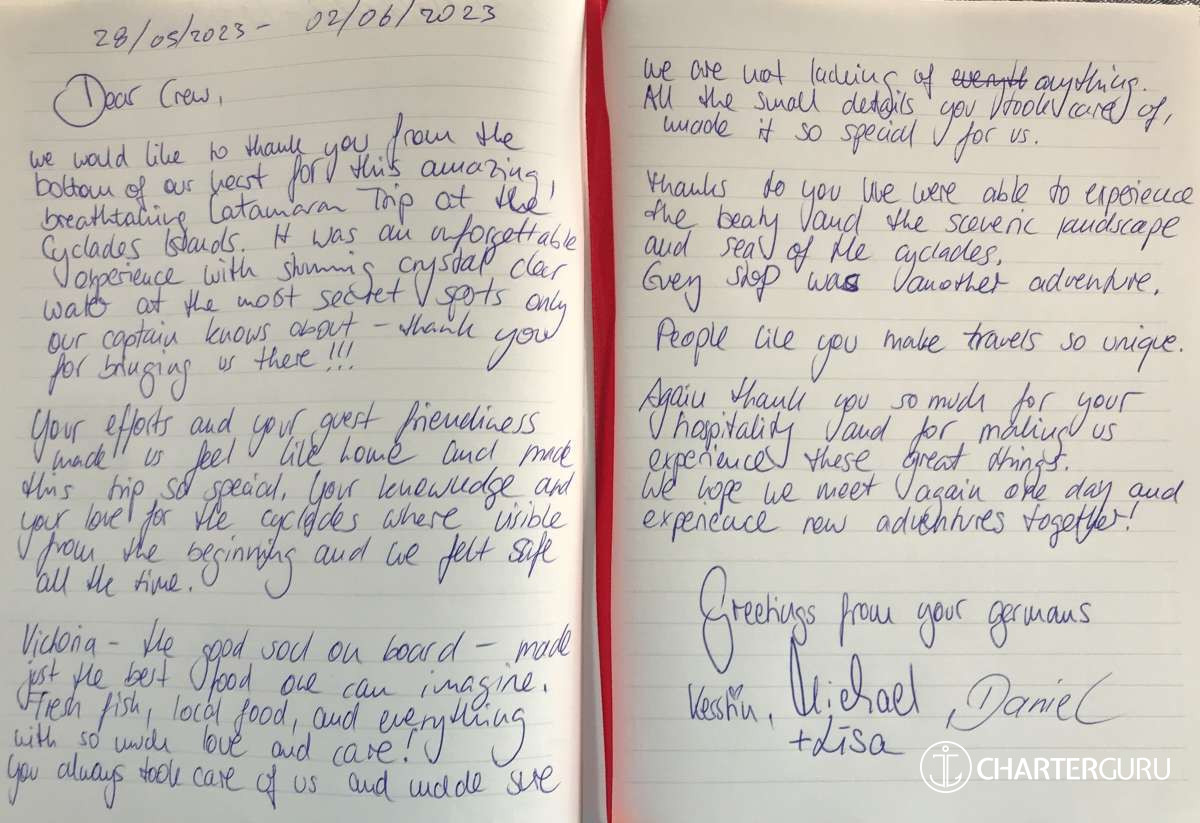 28/05/2023 - 02/06/2023
Dear Crew,
we would like to thank you from the
bottom of our heart for this amazing,
breathtaking Catamaran Trip at the
Cyclades Islands. It was an unforgettable
experience with stunning crystal clear
water at the most secret spots only
our captain knows about - thank you
for bringing us there!!!
Your efforts and your guest friendliness
made us feel like home and made
this trip so special. Your knowledge and
your love for the cyclades where visible
from the beginning and we felt safe
all the time.
Victoria - the good soul on board - made
just the best food one can imagine.
Fresh fish, local food, and everything
with so much love and care!
You always took care of us and made sure
we are not lacking of anything.
All the small details you took care of,
made it so special for us.
Thanks to you we were able to experience
the beaty and the sceneric landscape
and sea of the cyclades.
Every stop was another adventure.
People like you make travels so unique.
Again thank you so much for your
hospitality and for making us
experience these great things.
We hope we meet again one day and
experience new adventures together!
Greetings from your germans
Michael, Daniel
+ Lisa
CHARTERGURU